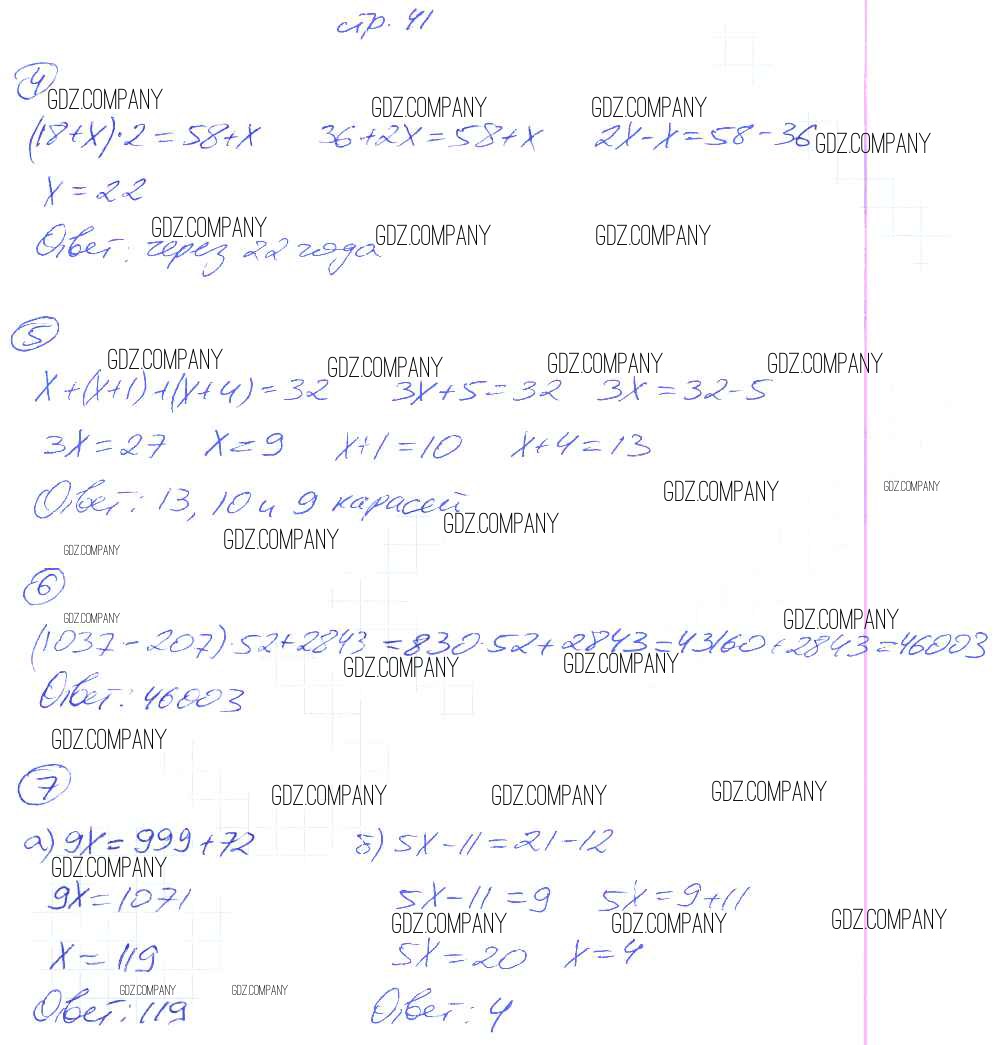 стр. 41
4
GDZ.COMPANY GDZ.COMPANY GDZ.COMPANY
(18+x)·2=58+x 36+2x=58+x 2x-x=58-36 GDZ.COMPANY
x=22
GDZ.COMPANY GDZ.COMPANY GDZ.COMPANY
Ответ: через 22 года
5
GDZ.COMPANY GDZ.COMPANY GDZ.COMPANY GDZ.COMPANY
x+(x+1)+(x+4)=32 3x+5=32 3x=32-5
3x=27 x=9 x+1=10 x+4=13
GDZ.COMPANY GDZ.COMPANY
Ответ: 13, 10 и 9 карасей
GDZ.COMPANY GDZ.COMPANY GDZ.COMPANY
6
GDZ.COMPANY GDZ.COMPANY
(1037-207)·52+2843=830·52+2843=43160+2843=46003
GDZ.COMPANY GDZ.COMPANY
Ответ: 46003
GDZ.COMPANY
7
GDZ.COMPANY GDZ.COMPANY GDZ.COMPANY
а) 9x=999+72 б) 5x-11=21-12
GDZ.COMPANY
9x=1071 5x-11=9 5x=9+11
GDZ.COMPANY GDZ.COMPANY GDZ.COMPANY
x=119 5x=20 x=4
GDZ.COMPANY GDZ.COMPANY
Ответ: 119 Ответ: 4